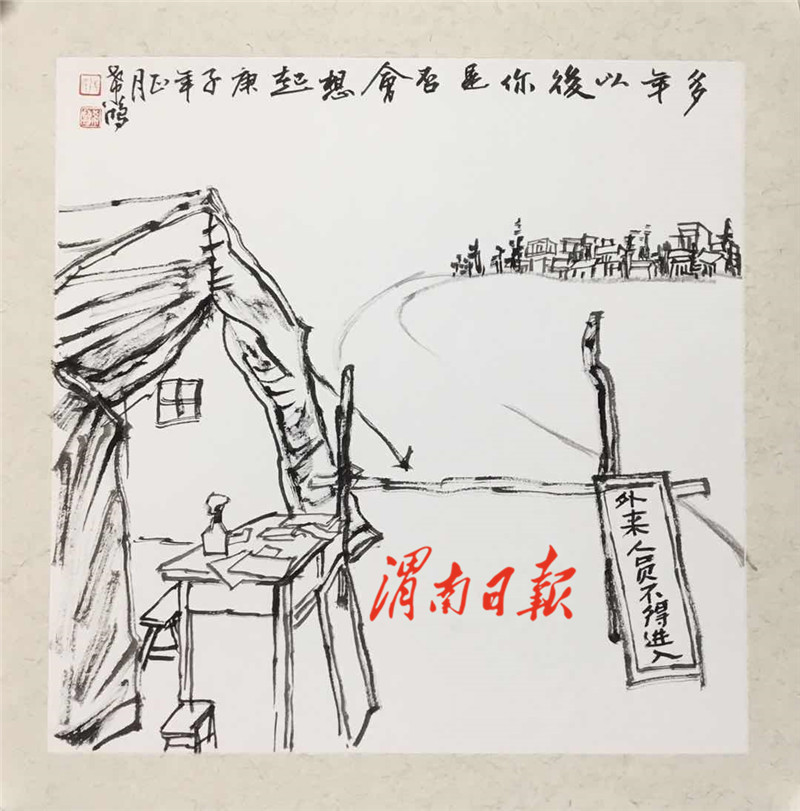 多年以後你是否會想起庚子年正月
外来人员不得进入
渭南日報